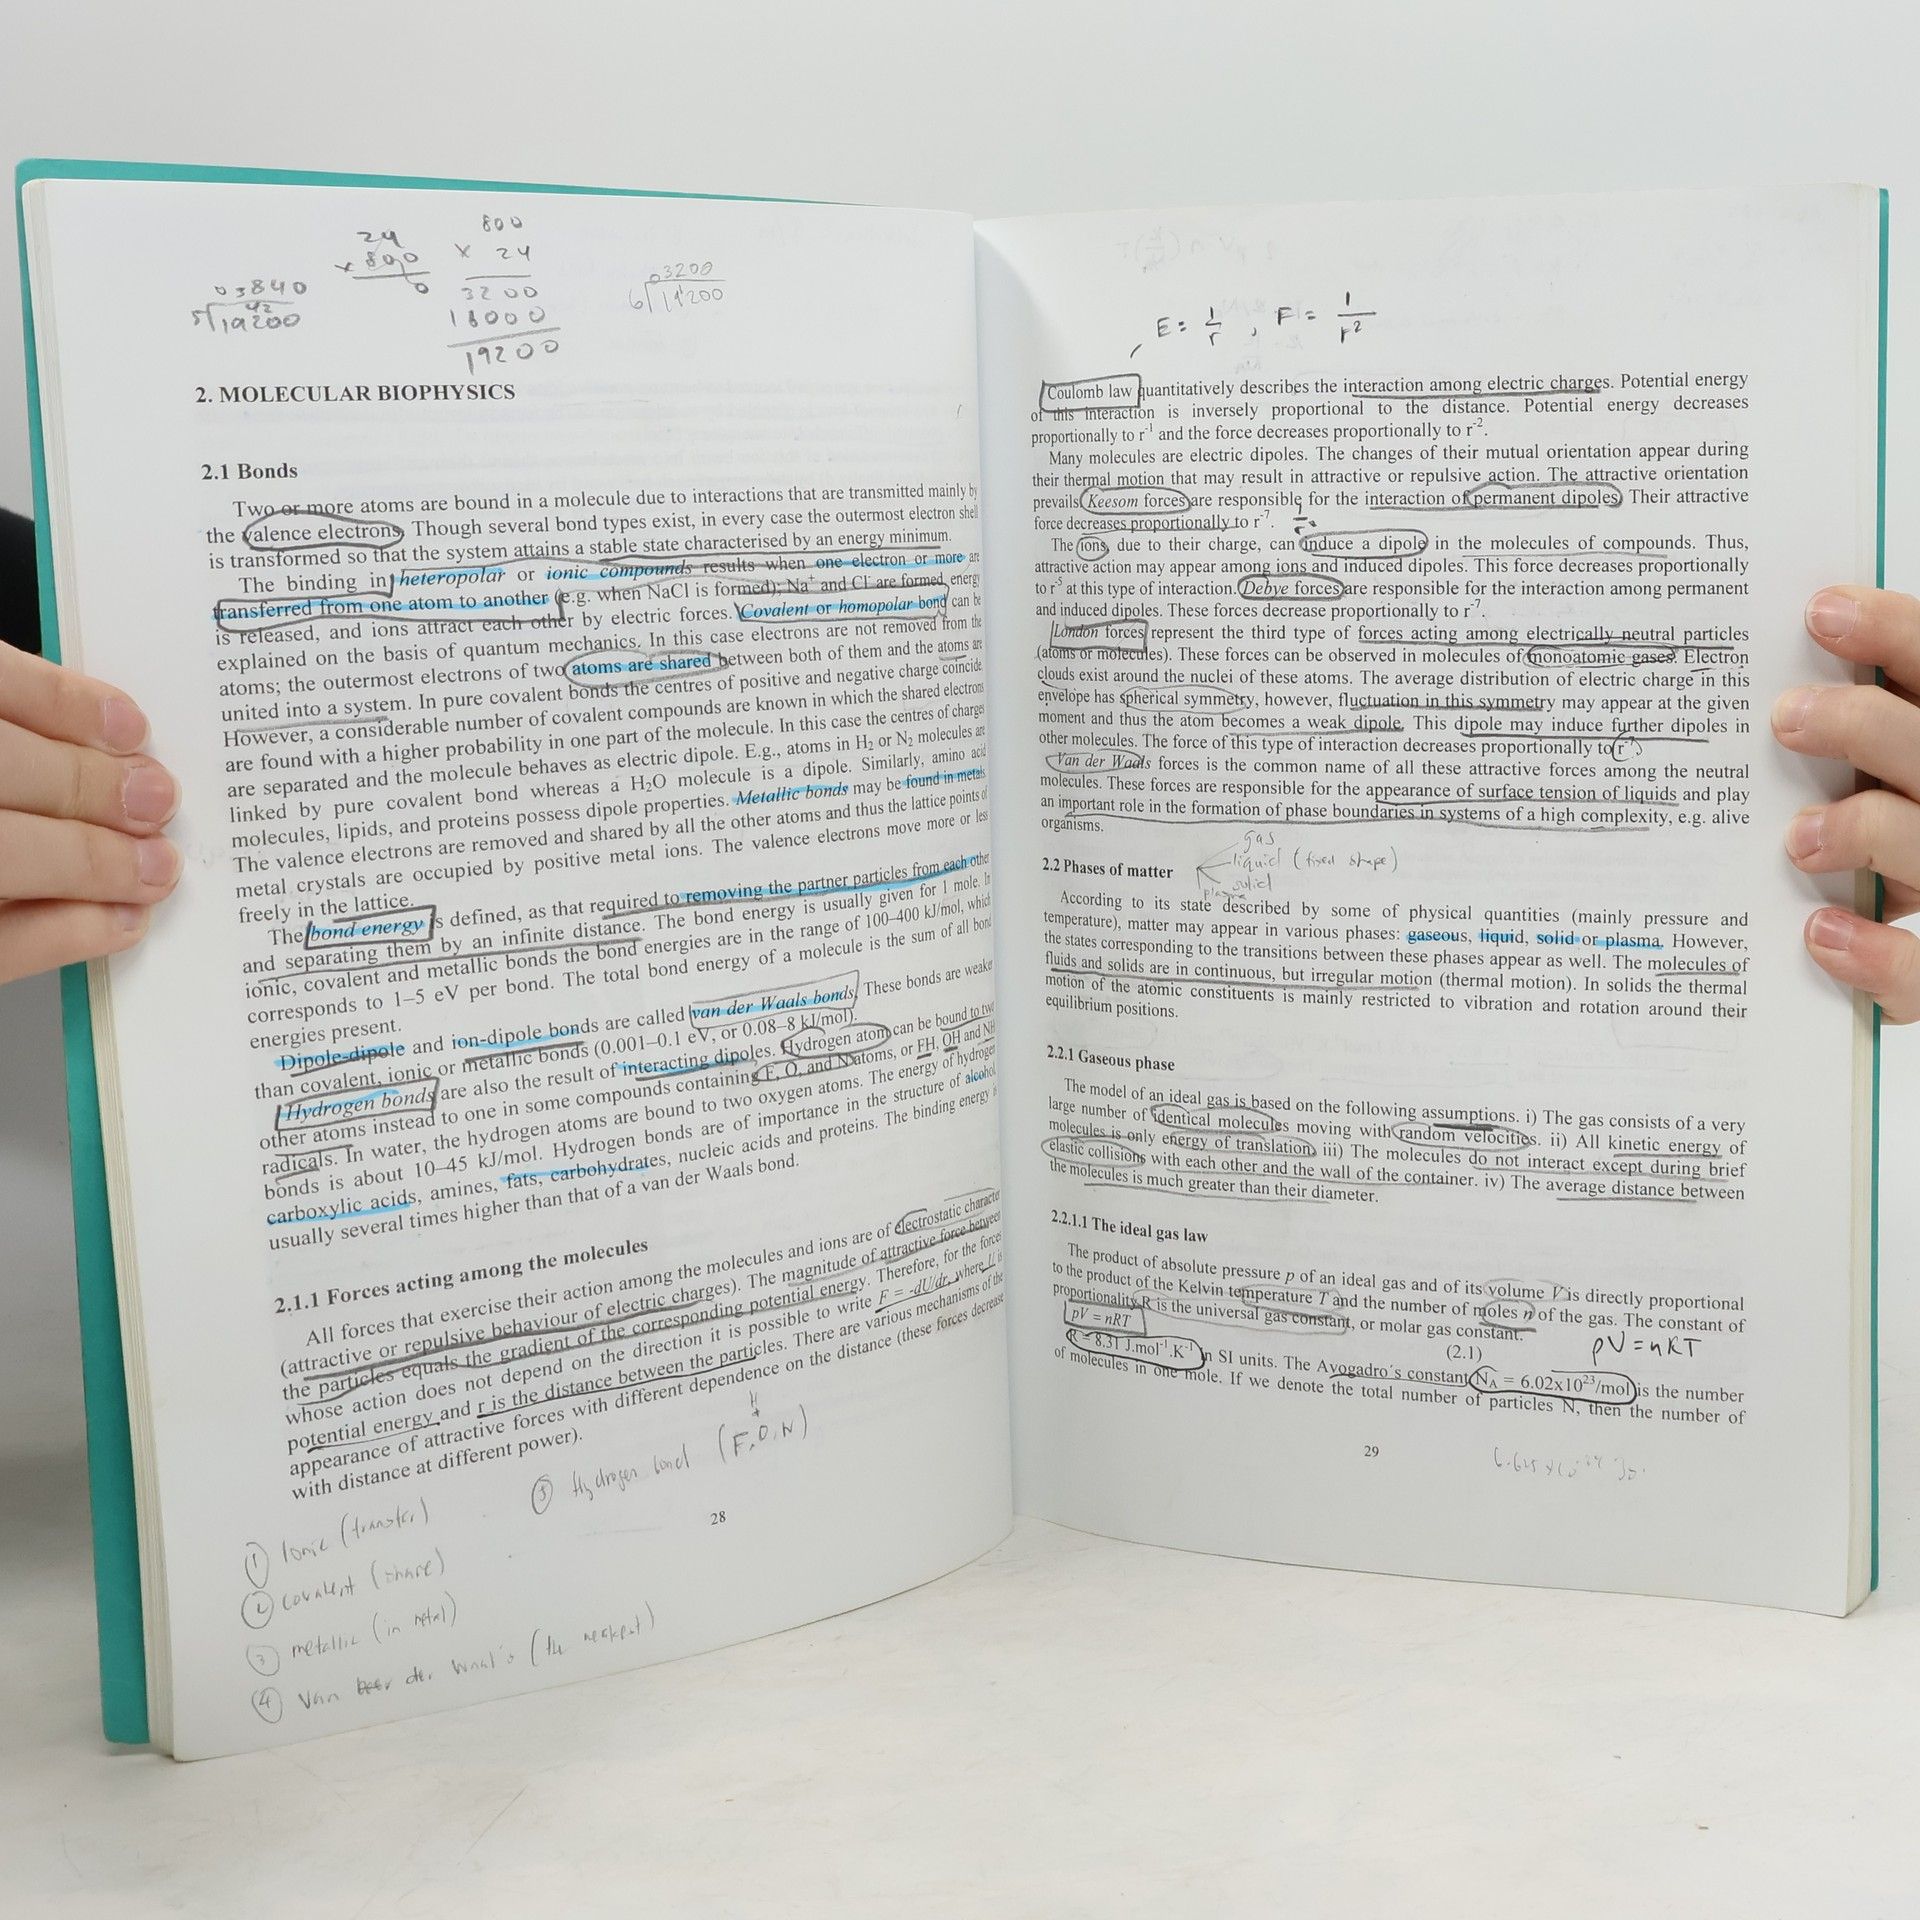 24
× 800
0
800
× 24
3200
16000
19200
03840
5 19200
03200
6 19200
2. MOLECULAR BIOPHYSICS
2.1 Bonds
Two or more atoms are bound in a molecule due to interactions that are transmitted mainly by
the valence electrons. Though several bond types exist, in every case the outermost electron shell
is transformed so that the system attains a stable state characterised by an energy minimum.
The binding in heteropolar or ionic compounds results when one electron or more are
transferred from one atom to another (e.g. when NaCl is formed); Na⁺ and Cl⁻ are formed, energy
is released, and ions attract each other by electric forces. Covalent or homopolar bond can be
explained on the basis of quantum mechanics. In this case electrons are not removed from the
atoms; the outermost electrons of two atoms are shared between both of them and the atoms are
united into a system. In pure covalent bonds the centres of positive and negative charge coincide.
However, a considerable number of covalent compounds are known in which the shared electrons
are found with a higher probability in one part of the molecule. In this case the centres of charge
are separated and the molecule behaves as electric dipole. E.g., atoms in H₂ or N₂ molecules are
linked by pure covalent bond whereas a H₂O molecule is a dipole. Similarly, amino acid
molecules, lipids, and proteins possess dipole properties. Metallic bonds may be found in metals.
The valence electrons are removed and shared by all the other atoms and thus the lattice points of
metal crystals are occupied by positive metal ions. The valence electrons move more or less
freely in the lattice.
The bond energy is defined, as that required to removing the partner particles from each other
and separating them by an infinite distance. The bond energy is usually given for 1 mole. In
ionic, covalent and metallic bonds the bond energies are in the range of 100–400 kJ/mol, which
corresponds to 1–5 eV per bond. The total bond energy of a molecule is the sum of all bond
energies present.
Dipole-dipole and ion-dipole bonds are called van der Waals bonds. These bonds are weaker
than covalent, ionic or metallic bonds (0.001–0.1 eV, or 0.08–8 kJ/mol).
Hydrogen bonds are also the result of interacting dipoles. Hydrogen atom can be bound to two
other atoms instead to one in some compounds containing F, O, and N atoms, or FH, OH and NH
radicals. In water, the hydrogen atoms are bound to two oxygen atoms. The energy of hydrogen
bonds is about 10–45 kJ/mol. Hydrogen bonds are of importance in the structure of alcohol,
carboxylic acids, amines, fats, carbohydrates, nucleic acids and proteins. The binding energy is
usually several times higher than that of a van der Waals bond.
2.1.1 Forces acting among the molecules
All forces that exercise their action among the molecules and ions are of electrostatic character
(attractive or repulsive behaviour of electric charges). The magnitude of attractive force between
the particles equals the gradient of the corresponding potential energy. Therefore, for the forces
whose action does not depend on the direction it is possible to write F = -dU/dr, where U is
potential energy and r is the distance between the particles. There are various mechanisms of the
appearance of attractive forces with different dependence on the distance (these forces decrease
with distance at different power).
① Ionic (transfer)
② covalent (share)
③ metallic (in metal)
④ Van der Waal's (the weakest)
⑤ Hydrogen bond (F, O, N)
H
28
E = 1/r , F = 1/r²
Coulomb law quantitatively describes the interaction among electric charges. Potential energy
of this interaction is inversely proportional to the distance. Potential energy decreases
proportionally to r⁻¹ and the force decreases proportionally to r⁻².
Many molecules are electric dipoles. The changes of their mutual orientation appear during
their thermal motion that may result in attractive or repulsive action. The attractive orientation
prevails. Keesom forces are responsible for the interaction of permanent dipoles. Their attractive
force decreases proportionally to r⁻⁷.
The ions, due to their charge, can induce a dipole in the molecules of compounds. Thus,
attractive action may appear among ions and induced dipoles. This force decreases proportionally
to r⁻⁵ at this type of interaction. Debye forces are responsible for the interaction among permanent
and induced dipoles. These forces decrease proportionally to r⁻⁷.
London forces represent the third type of forces acting among electrically neutral particles
(atoms or molecules). These forces can be observed in molecules of monoatomic gases. Electron
clouds exist around the nuclei of these atoms. The average distribution of electric charge in this
envelope has spherical symmetry, however, fluctuation in this symmetry may appear at the given
moment and thus the atom becomes a weak dipole. This dipole may induce further dipoles in
other molecules. The force of this type of interaction decreases proportionally to r⁻⁷.
Van der Waals forces is the common name of all these attractive forces among the neutral
molecules. These forces are responsible for the appearance of surface tension of liquids and play
an important role in the formation of phase boundaries in systems of a high complexity, e.g. alive
organisms.
gas
liquid (fixed shape)
solid
plasma
2.2 Phases of matter
According to its state described by some of physical quantities (mainly pressure and
temperature), matter may appear in various phases: gaseous, liquid, solid or plasma. However,
the states corresponding to the transitions between these phases appear as well. The molecules of
fluids and solids are in continuous, but irregular motion (thermal motion). In solids the thermal
motion of the atomic constituents is mainly restricted to vibration and rotation around their
equilibrium positions.
2.2.1 Gaseous phase
The model of an ideal gas is based on the following assumptions. i) The gas consists of a very
large number of identical molecules moving with random velocities. ii) All kinetic energy of
molecules is only energy of translation. iii) The molecules do not interact except during brief
elastic collisions with each other and the wall of the container. iv) The average distance between
the molecules is much greater than their diameter.
2.2.1.1 The ideal gas law
The product of absolute pressure p of an ideal gas and of its volume V is directly proportional
to the product of the Kelvin temperature T and the number of moles n of the gas. The constant of
proportionality R is the universal gas constant, or molar gas constant.
pV = nRT
(2.1)
pV = nRT
R = 8.31 J.mol⁻¹.K⁻¹ in SI units. The Avogadro´s constant N_A = 6.02x10²³/mol is the number
of molecules in one mole. If we denote the total number of particles N, then the number of
29